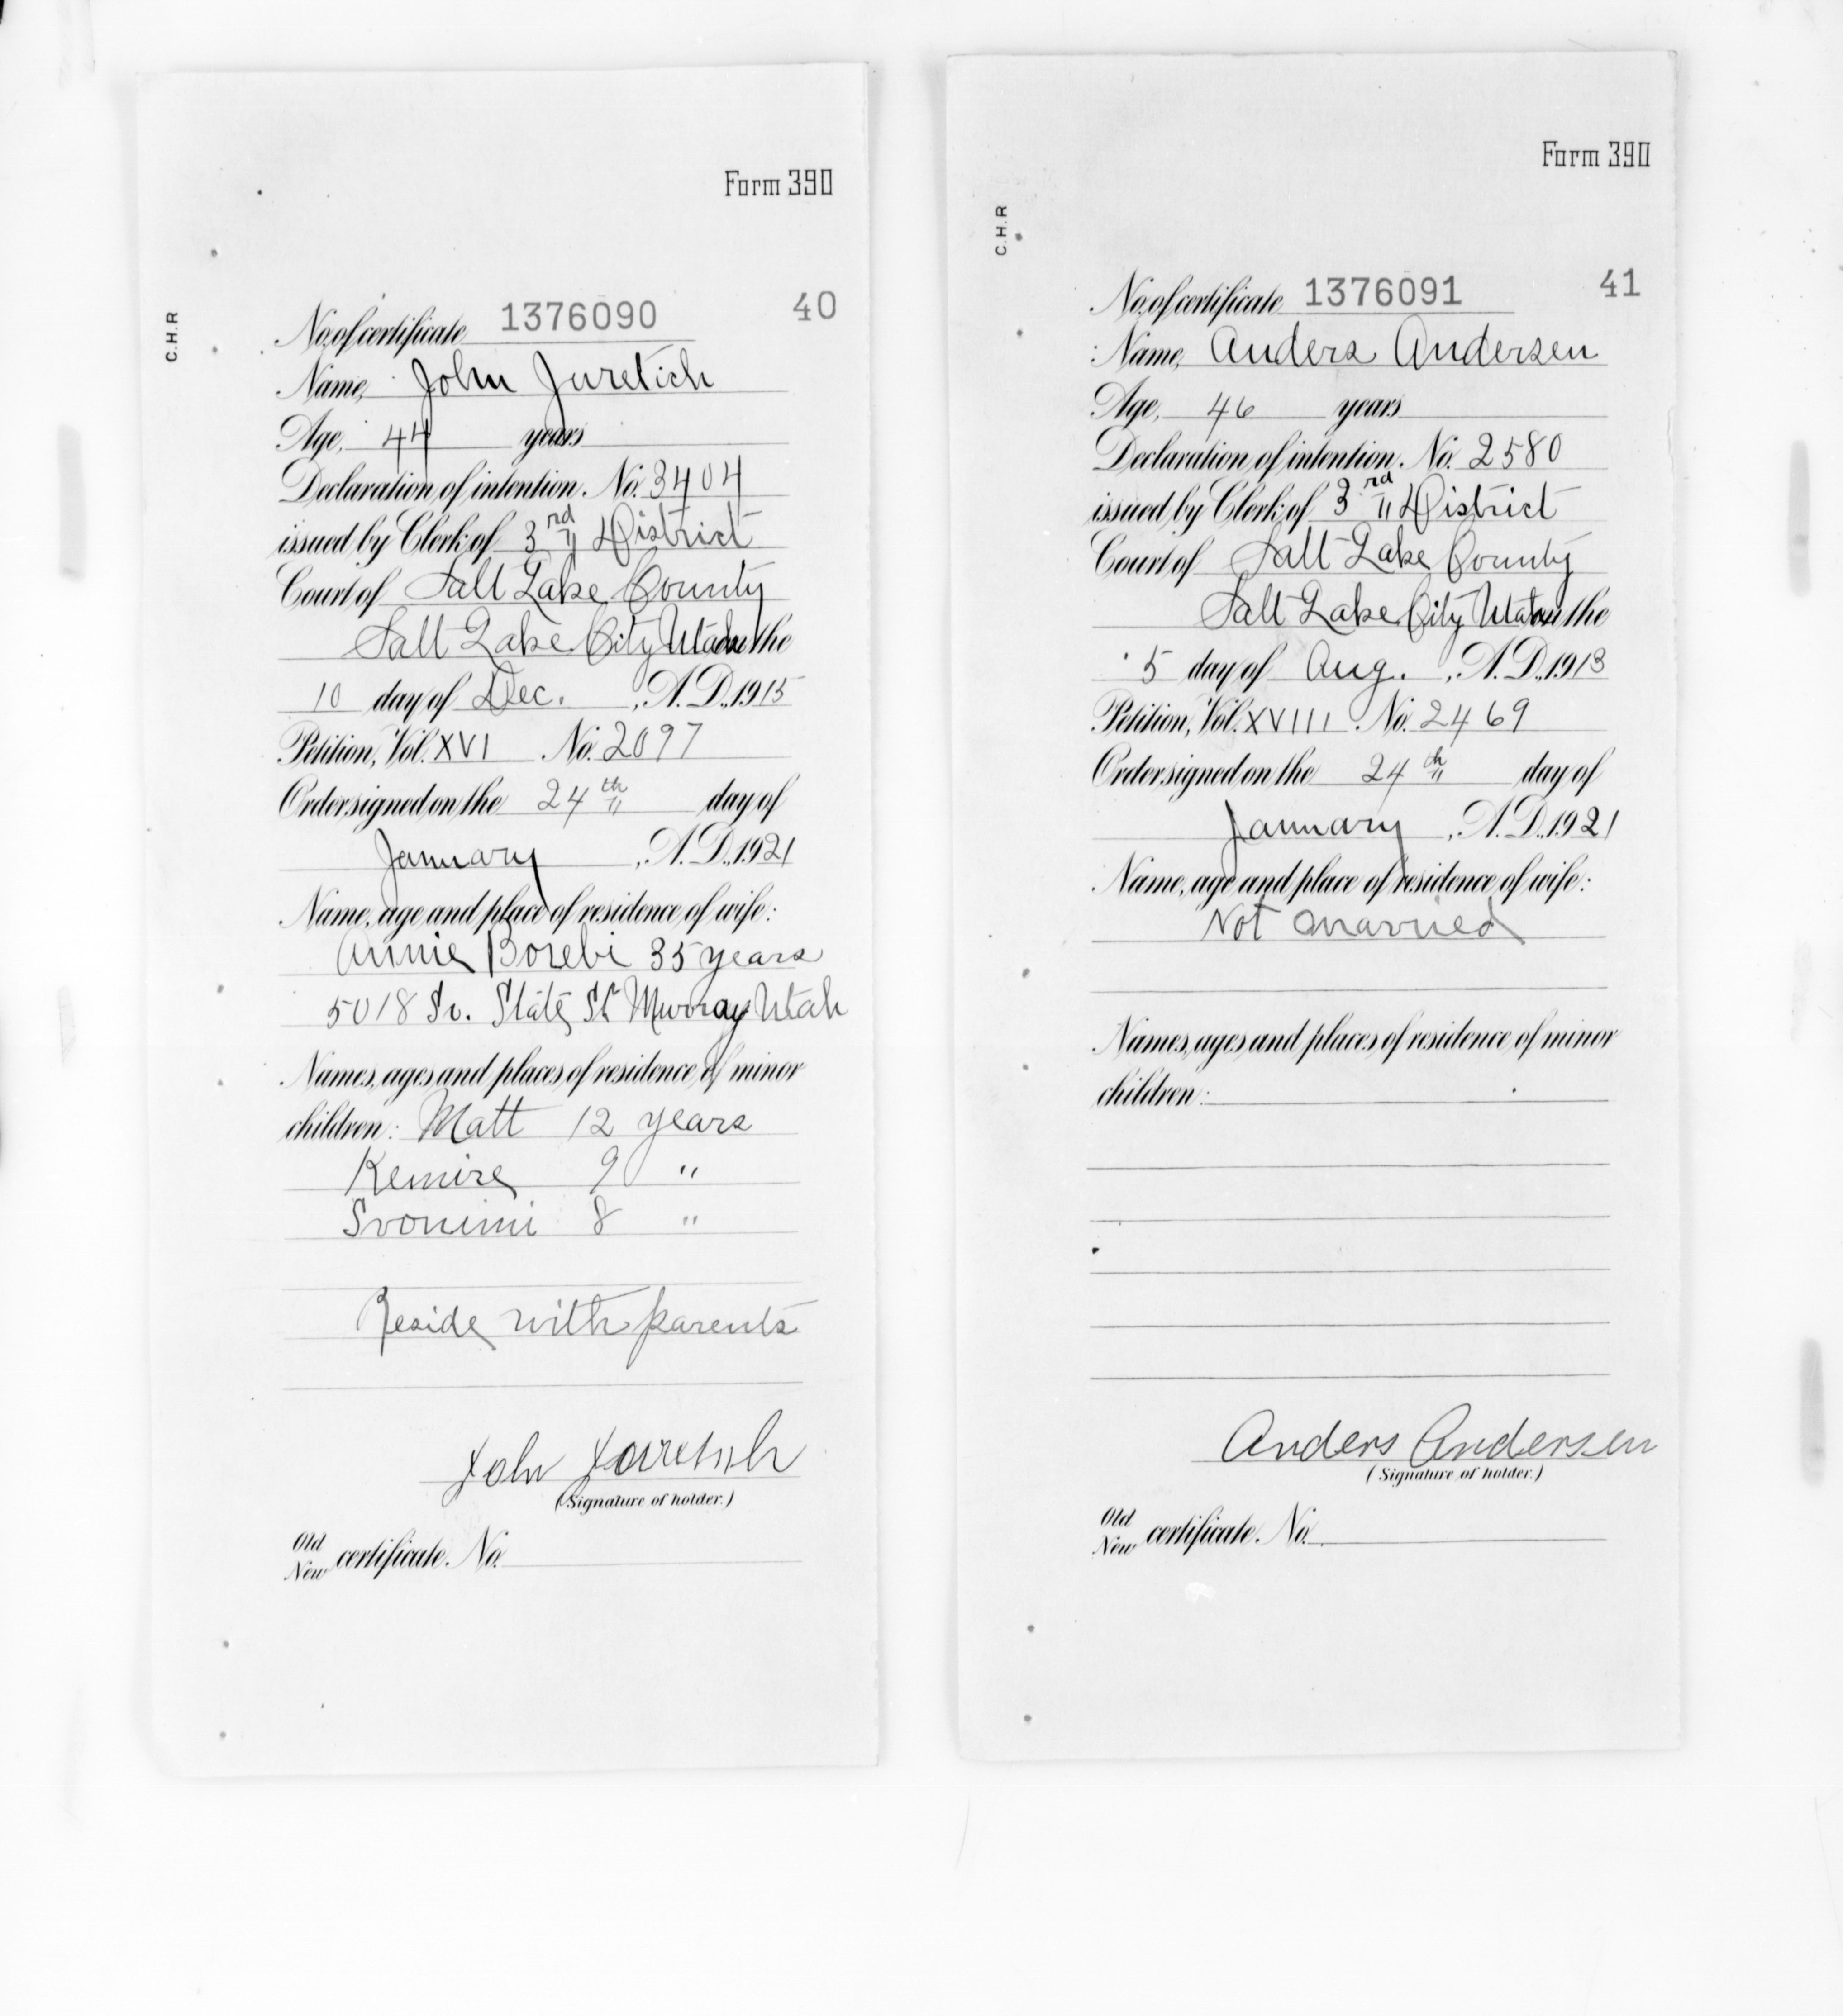 Form 390
C.H.R
No. of certificate 1376090 40
Name, John Juretich
Age, 44 years
Declaration of intention. No. 3404
issued by Clerk of 3rd " District
Court of Salt Lake County
Salt Lake City Utah on the
10 day of Dec. , A.D., 1915
Petition, Vol. XVI No. 2097
Order signed on the 24th " day of
January , A.D., 1921
Name, age and place of residence of wife:
Annie Borebi 35 years
5018 So. State St Murray Utah
Names, ages and places of residence of minor
children: Matt 12 years
Kemire 9 "
Svonimi 8 "
Reside with parents
John
(Signature of holder.)
Old
New certificate. No.
Form 390
C.H.R
No. of certificate 1376091 41
Name, Anders Andersen
Age, 46 years
Declaration of intention. No. 2580
issued by Clerk of 3rd " District
Court of Salt Lake County
Salt Lake City Utah on the
5 day of Aug. , A.D., 1913
Petition, Vol. XVIII No. 2469
Order signed on the 24th " day of
January , A.D., 1921
Name, age and place of residence of wife:
Not married
Names, ages and places of residence of minor
children:
Anders Andersen
(Signature of holder.)
Old
New certificate. No.